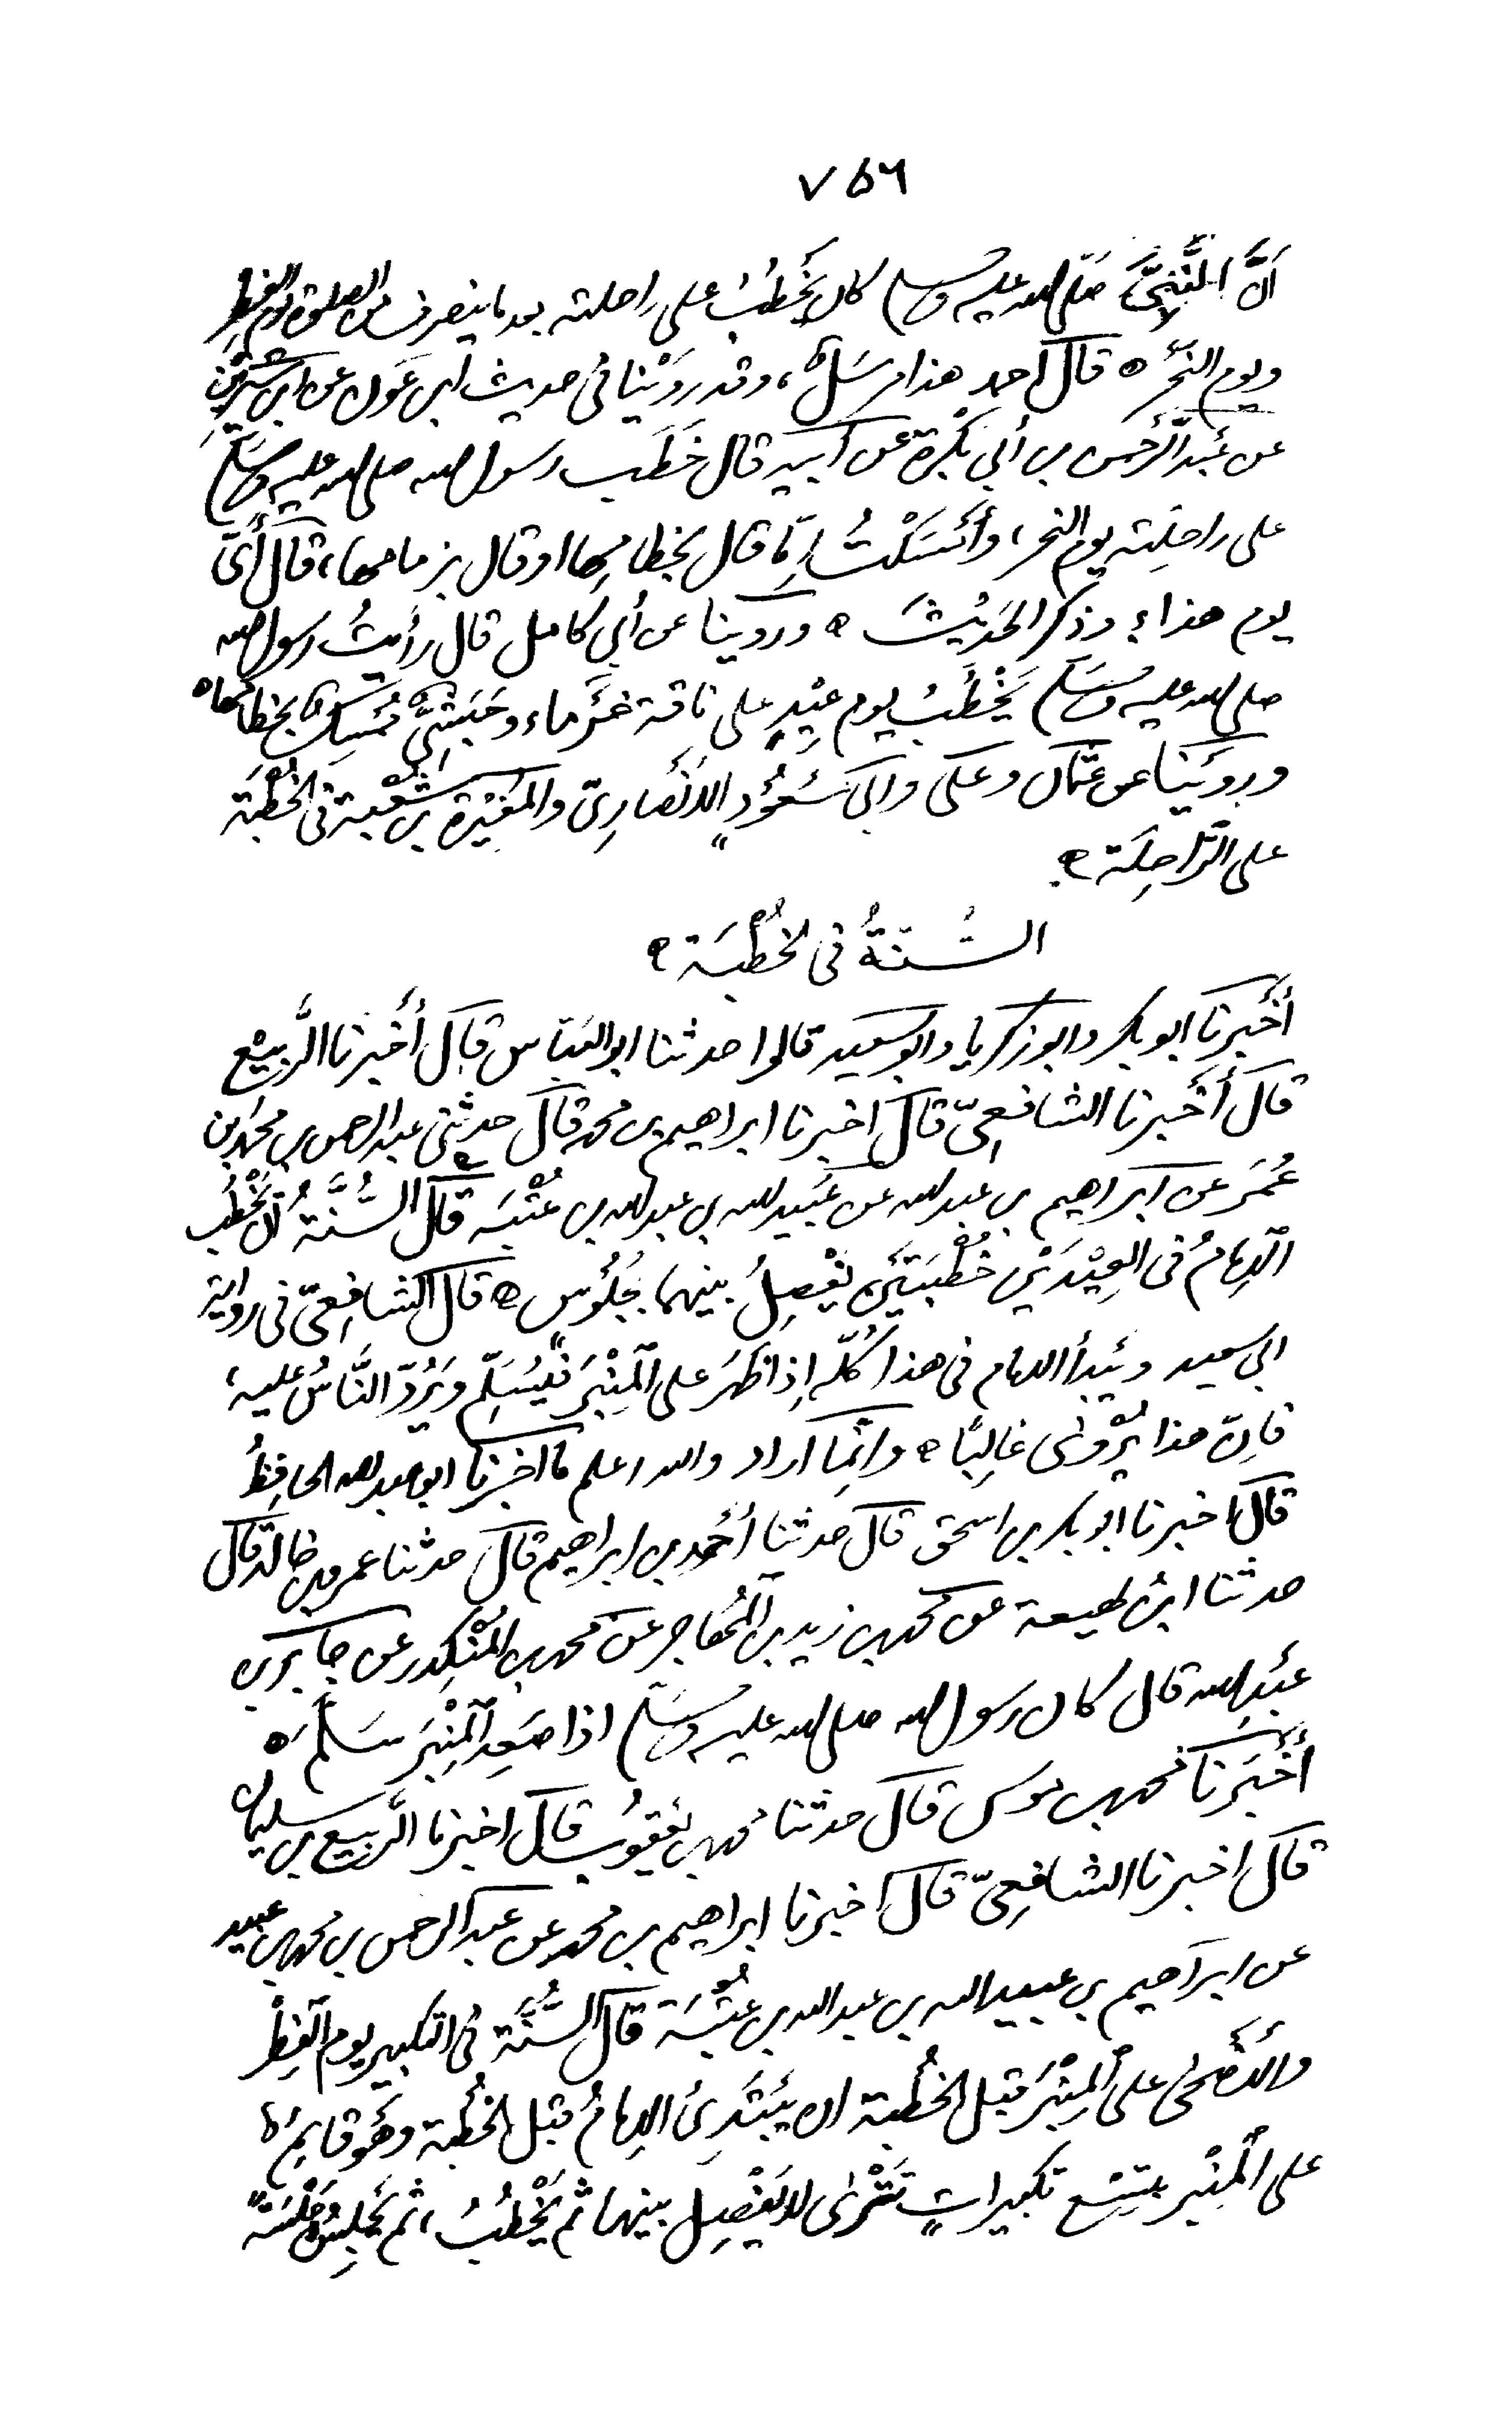 ٧٥٦
أنَّ النَّبيَّ صلى الله عليه وسلم كان يَخْطُبُ على راحلته بعد ما ينصرف من الصلوة يوم الفِطْرِ
ويوم النحر ٥ قال احمد هذا مرسَلٌ، وقد روَيْنا في حديث ابن عَون عن ابن سيرين
عن عَبْد الرَّحمن بن أبي بَكْرة عن أبيه قال خَطَب رسول الله صلى الله عليه وسلم
على راحِلته يوم النحر، وأَمْسَكْتُ إمّا قال بخطامِها او قال بزمامها، قال أيُّ
يوم هذا، وذكر الحَدِيْثَ ٥ وروينا عن أبي كامل قال رأيتُ رسول الله
صلى الله عليه وسَلَّم يَخْطُبُ يوم عِيْدٍ على ناقة خَرْماء وحَبَشِيٌّ مُمْسِكٌ بخطامها ٥
وروَيْنا عن عثمان وعلى وابى مَسْعُوْدٍ الأَنْصَارِيّ والمُغِيْرَة بن شُعْبة في الخُطْبَة
على الرَّاحِلَة ٥
السُّنَّةُ في الخُطْبَة ٥
أَخْبرنا ابو بكر وابو زكريا وابو سعيد قالوا حدثنا ابو العبّاس قال أَخْبرنا الرَّبيْع
قال أَخْبرنا الشافعيّ قال اخبرنا ابراهيم بن محمد قال حدثني عبد الرحمن بن محمد بن
عُمَر عن ابراهيم بن عبد الله عن عُبَيد الله بن عبد الله بن عُتْبَه قال السُّنَّةُ أن يَخْطُب
الإمامُ في العِيْدَيْن خُطْبَتَيْن يَفْصِلُ بينهما بجُلُوْسٍ ٥ قال الشافِعيّ في رواية
ابى سعيد ويَبْدأ الامام في هذا كُلِّه إذا ظهَرَ على المِنْبَر فَيُسَلِّم ويَرُدّ النَّاسُ عليه،
فإنّ هذا يُرْوَى غالِبًا ٥ وإنّما اراد والله اعلم ما اخبرنا ابو عبد الله الحافِظُ
قال اخبرنا ابو بكر بن اسحق قال حدثنا أحْمد بن ابراهيم قال حدثنا عمرو بن خالد قال
حدثنا ابنُ لهيعة عن محمد بن زيد بن المُهَاجر عن محمد بن المُنْكَدِر عن جابر بن
عَبْد الله قال كان رسول الله صلى الله عليه وسلم اذا صَعِد المِنْبَر سَلَّمَ ٥
أَخْبَرنا محمد بن موسى قال حدثنا محمد بن يَعْقوبُ قال اخبرنا الرَّبيع بن سليمان
قال اخبرنا الشافِعِيّ قال اخبرنا ابراهيم بن محمد عن عبد الرحمن بن محمد بن عبيد
عن ابراهيم بن عبيد الله بن عبد الله بن عُتْبَة قال السُّنَّة في التكبير يوم الفِطْر
والأَضْحَى على المِنْبَر قبل الخُطْبة ان يَبْتَدِئَ الإمامُ قبل الخُطْبة وهَوَ قايمٌ
على المِنْبَر بتِسْعِ تكبيراتٍ تَتْرَى لا يَفْصِل بينها ثم يَخْطُبُ، ثم يَجْلِسُ جَلْسَةً